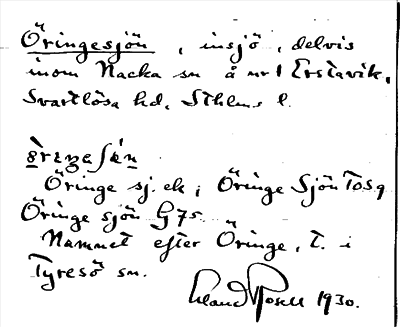 Öringesjön, insjö, delvis
inom Nacka sn å nr 1 Erstavik,
Svartlösa hd, Sthlms l.
Öringe sj. ek; Öringe Sjön Tosg
Öringe sjön G 75
Namnet efter Öringe, t. i
Tyresö sn.
Erland Rosell 1930.